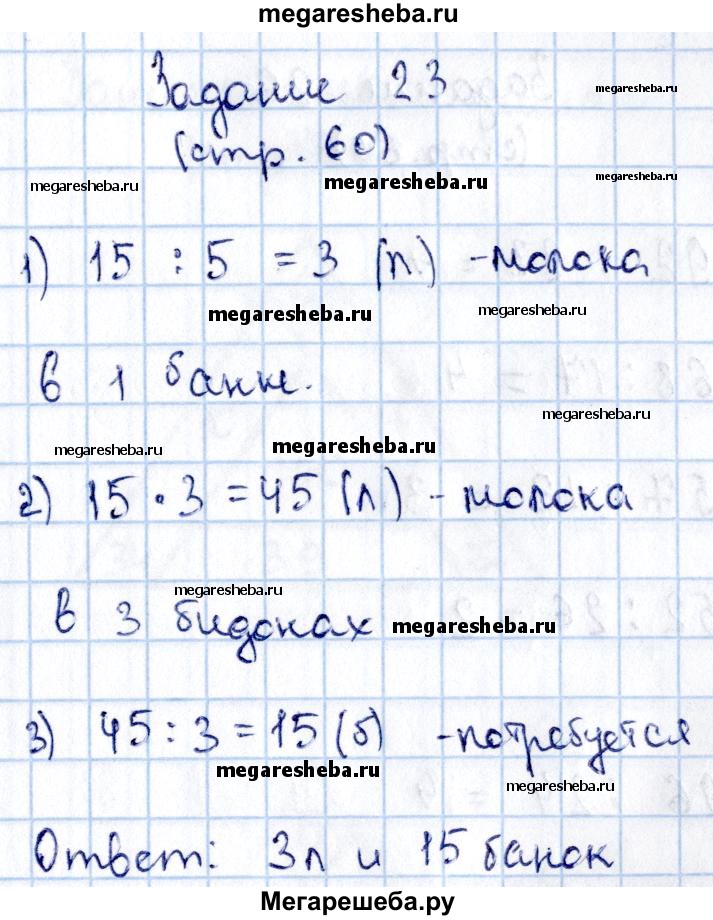 megaresheba.ru
Задание 23
megaresheba.ru
(стр. 60)
megaresheba.ru
megaresheba.ru
megaresheba.ru
1) 15 : 5 = 3 (л) - молока
megaresheba.ru
megaresheba.ru
в 1 банке.
megaresheba.ru
megaresheba.ru
megaresheba.ru
2) 15 · 3 = 45 (л) - молока
megaresheba.ru
в 3 бидонах
megaresheba.ru
3) 45 : 3 = 15 (б) - потребуется
megaresheba.ru
megaresheba.ru
Ответ: 3л и 15 банок
Мегарешеба.ру